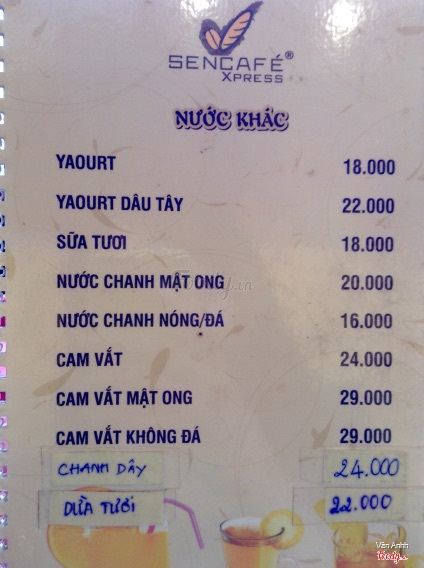 SENCAFÉ®
XPRESS
NƯỚC KHÁC
YAOURT 18.000
YAOURT DÂU TÂY 22.000
SỮA TƯƠI 18.000
NƯỚC CHANH MẬT ONG 20.000
NƯỚC CHANH NÓNG/ĐÁ 16.000
CAM VẮT 24.000
CAM VẮT MẬT ONG 29.000
CAM VẮT KHÔNG ĐÁ 29.000
CHANH DÂY 24.000
DỪA TƯƠI 22.000
Foody.vn
Vân Anhh
foody.vn